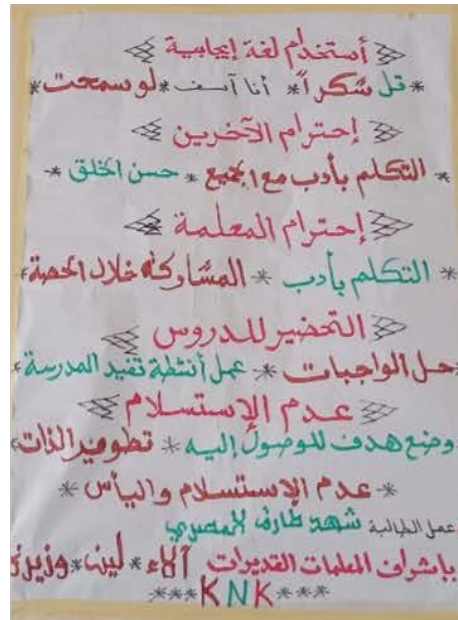 أستخدام لغة إيجابية
*قل شكراً* أنا آسف *لو سمحت*
إحترام الآخرين
* التكلم بأدب مع الجميع * حسن الخلق *
إحترام المعلمة
* التكلم بأدب * المشاركة خلال الحصة*
التحضير للدروس
*حل الواجبات * عمل أنشطة تفيد المدرسة*
عدم الإستسلام
وضع هدف للوصول إليه * تطوير الذات*
*عدم الإستسلام واليأس*
عمل الطالبة شهد طارق المصري
بإشراف المعلمات القديرات آلاء * لينا *
***KNK***